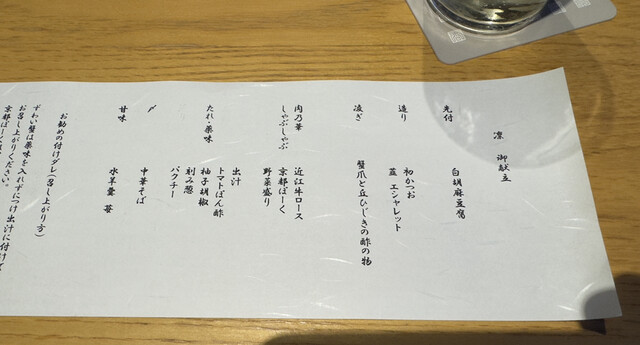 凛 御献立
先付
白胡麻豆腐
造り
初かつお
茗 エシャレット
凌ぎ
蟹爪と丘ひじきの酢の物
肉乃華
しゃぶしゃぶ
近江牛ロース
京都ぽーく
野菜盛り
たれ・薬味
出汁
トマトぽん酢
柚子胡椒
刻み葱
パクチー
〆
中華そば
甘味
水羊羹 苺
お勧めの付けダレ(召し上がり方)
ずわい蟹は薬味を入れずにつけ出汁に付けて
お召し上がりください。
京都ぽーく